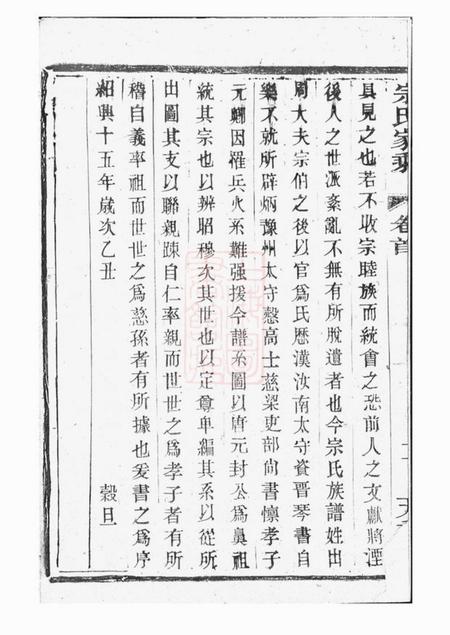 宗氏家乘 卷首
具見之也若不收宗睦族而統會之恐前人之文獻將湮
後人之世派紊亂不無有所脫遺者也今宗氏族譜姓出
周大夫宗伯之後以官爲氏歷漢汝南太守資晉琴書自
樂不就所辟炳豫州太守慤高士慈梁吏部尚書懷孝子
元卿因權兵火系難强援今譜系圖以唐元封公爲鼻祖
統其宗也以辨昭穆次其世也以定尊卑編其系以從所
出圖其支以聯親踈自仁率親而世世之爲孝子者有所
稽自義率祖而世世之爲慈孫者有所據也爰書之爲序
紹興十五年歲次乙丑 穀旦